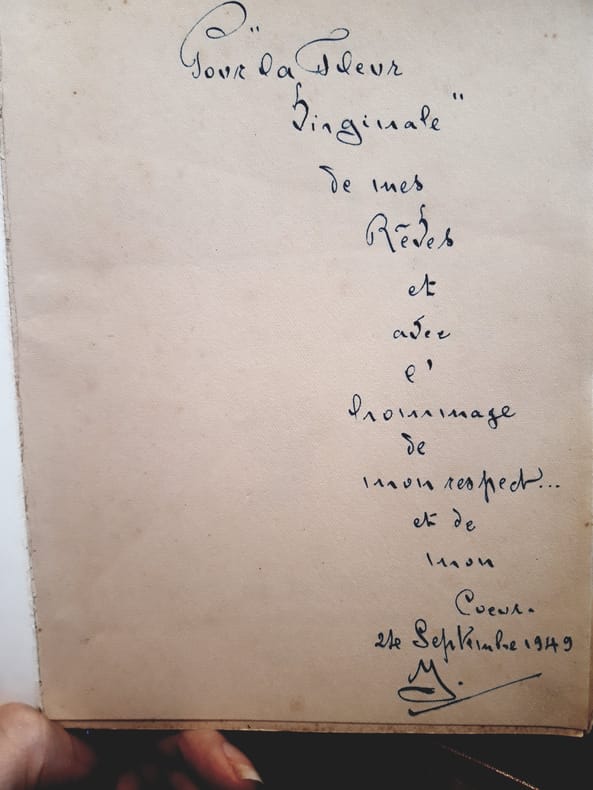 Pour "la Fleur
Virginale"
de mes
Rêves
et
avec
l'
hommage
de
mon respect...
et de
mon
Coeur.
24 Septembre 1949
M.